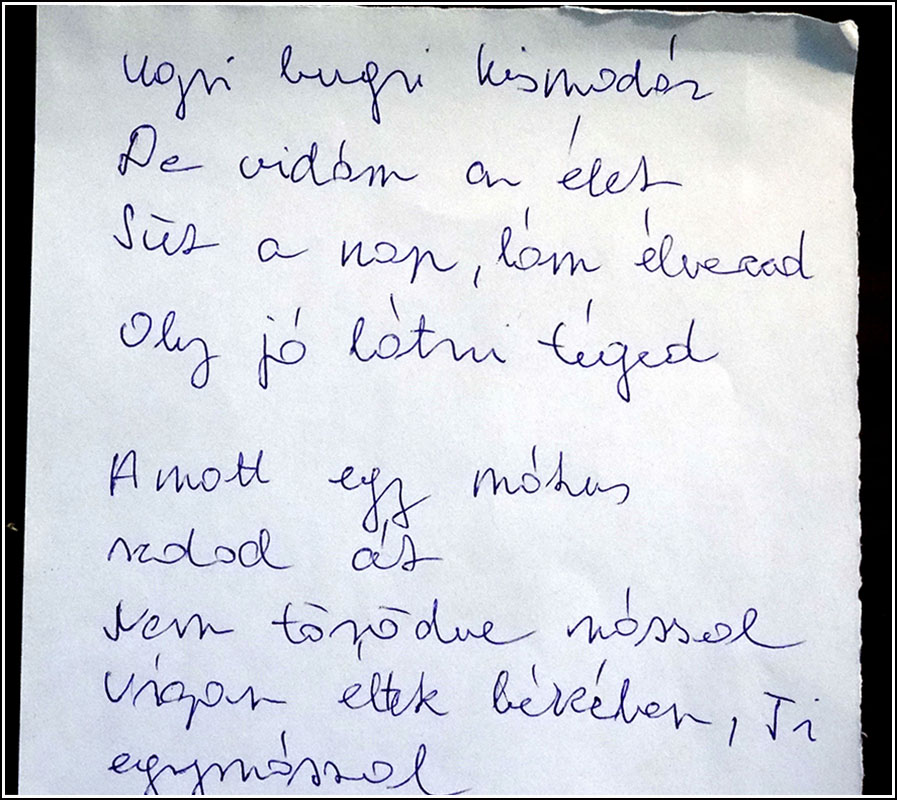 Ugri bugri kismadár
De vidám az élet
Süt a nap, lám élvezed
Oly jó látni téged
Amott egy mókus
szalad át
Nem törődve mással
Vígan éltek békében, Ti
egymással